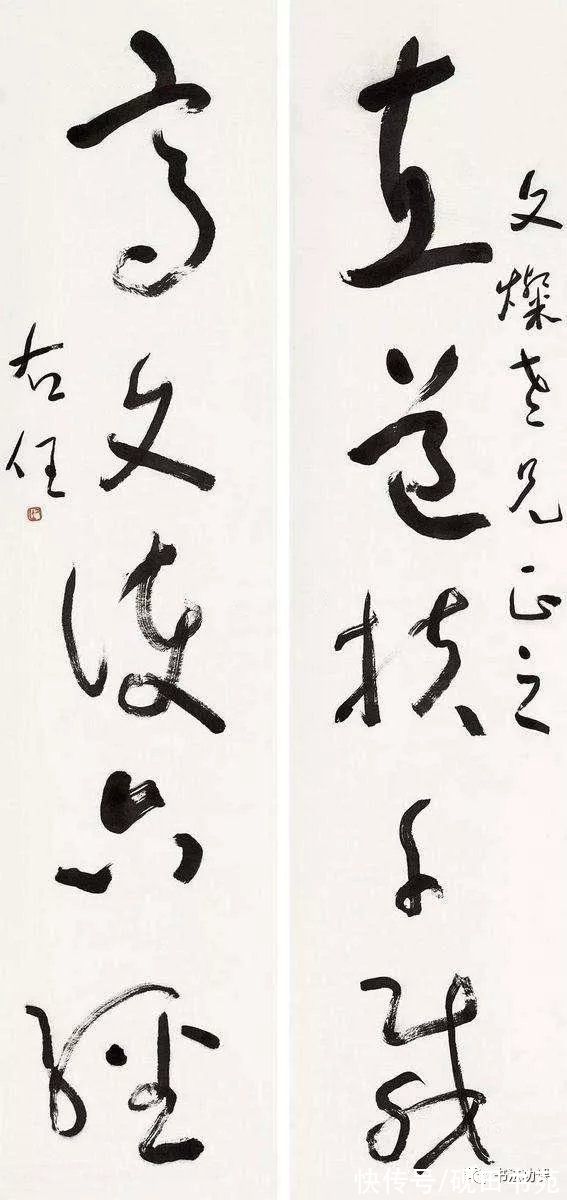 文燦老兄正之
直道扶千載
高文護六經
右任
快传号/砚田书苑